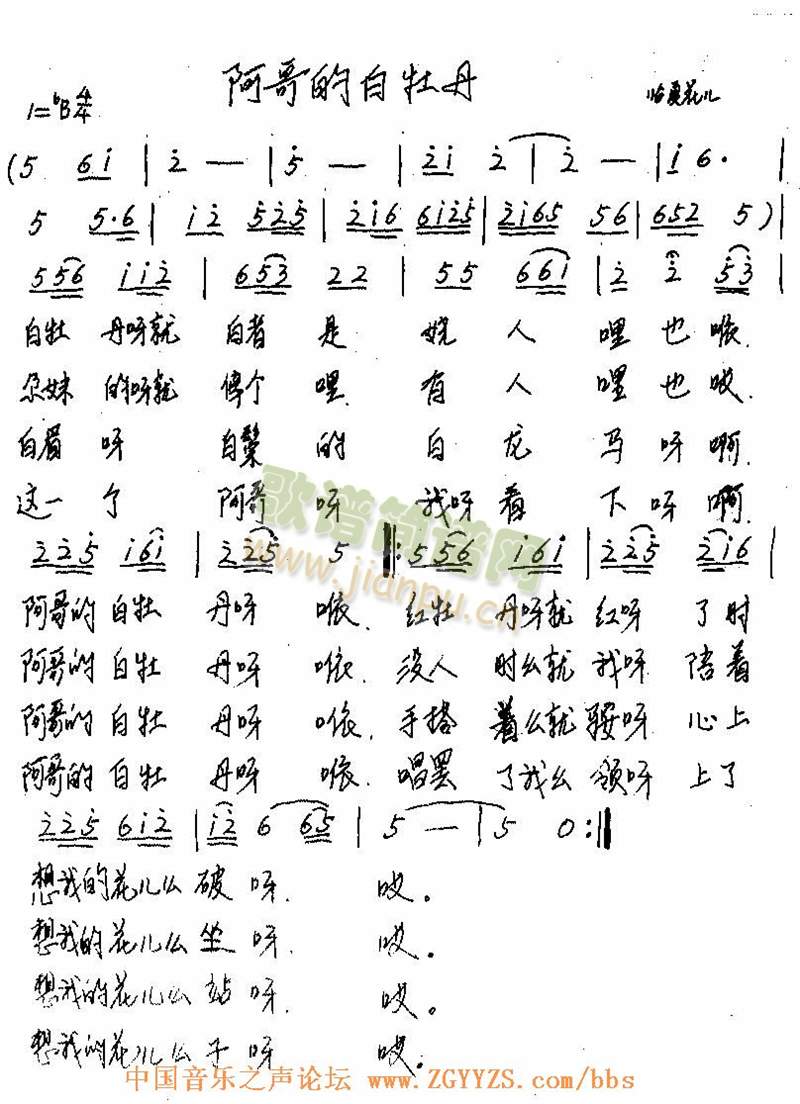 阿哥的白牡丹
1=♭B 4/4 临夏花儿
(5 6i | 2 — | 5 — | 2i 2 | 2 — | i 6· |
5 5·6 | i2 525 | 2i6 6i25 | 2i65 56 | 652 5) |
556 ii2 | 653 22 | 55 66i | 2 2 53 |
白牡 丹呀就 白者 是 娆 人 哩也 咴.
尕妹 的呀就 俊个 哩 有 人 哩也 哎.
白眉 呀 白鬃 的 白 龙 马 呀 啊.
这一 个 阿哥 呀 我呀 看 下 呀 啊.
225 i6i | 225 5 |: 556 i6i | 225 2i6 |
阿哥的 白牡 丹呀 咴. 红牡 丹呀就 红呀 了时
阿哥的 白牡 丹呀 咴. 没人 时么就 我呀 陪着
阿哥的 白牡 丹呀 咴. 手搭 着么就 鞍呀 心上
阿哥的 白牡 丹呀 咴. 唱罢 了我么 领呀 上了
225 6i2 | i2 6 65 | 5 — | 5 0 :||
想我的 花儿么 破 呀. 哎。
想我的 花儿么 坐 呀. 哎。
想我的 花儿么 站 呀. 哎。
想我的 花儿么 子 呀 哎.
歌谱简谱网
www.jianpu.cn
中国音乐之声论坛 www.ZGYYZS.com/bbs